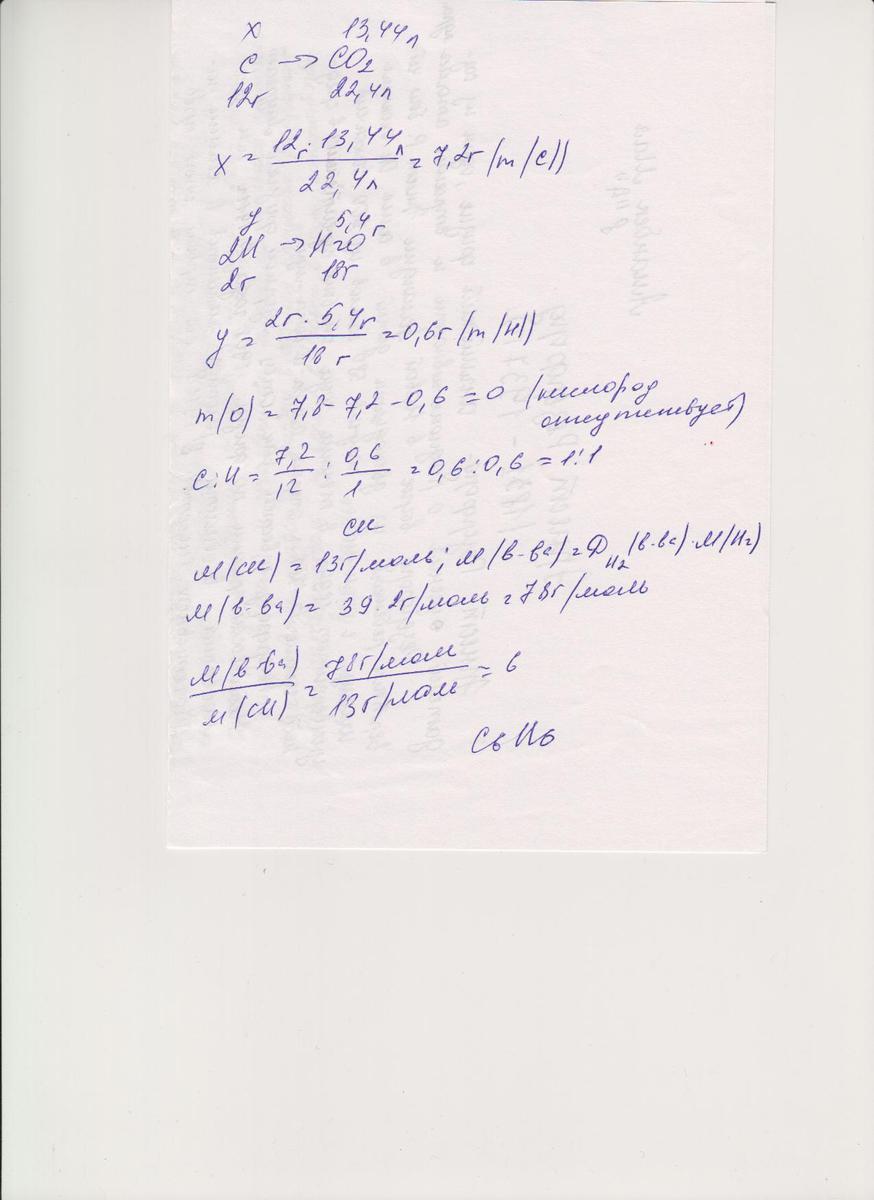 x 13,44л
C → CO2
12г 22,4л
x = 12г · 13,44л / 22,4л = 7,2г (m(C))
y 5,4г
2H → H2O
2г 18г
y = 2г · 5,4г / 18г = 0,6г (m(H))
m(O) = 7,8 - 7,2 - 0,6 = 0 (кислород
отсутствует)
C:H = 7,2/12 : 0,6/1 = 0,6 : 0,6 = 1:1
CH
M(CH) = 13г/моль; M(в-ва) = D H2 (в-ва) · M(H2)
M(в-ва) = 39 · 2г/моль = 78г/моль
M(в-ва) / M(CH) = 78г/моль / 13г/моль = 6
C6H6